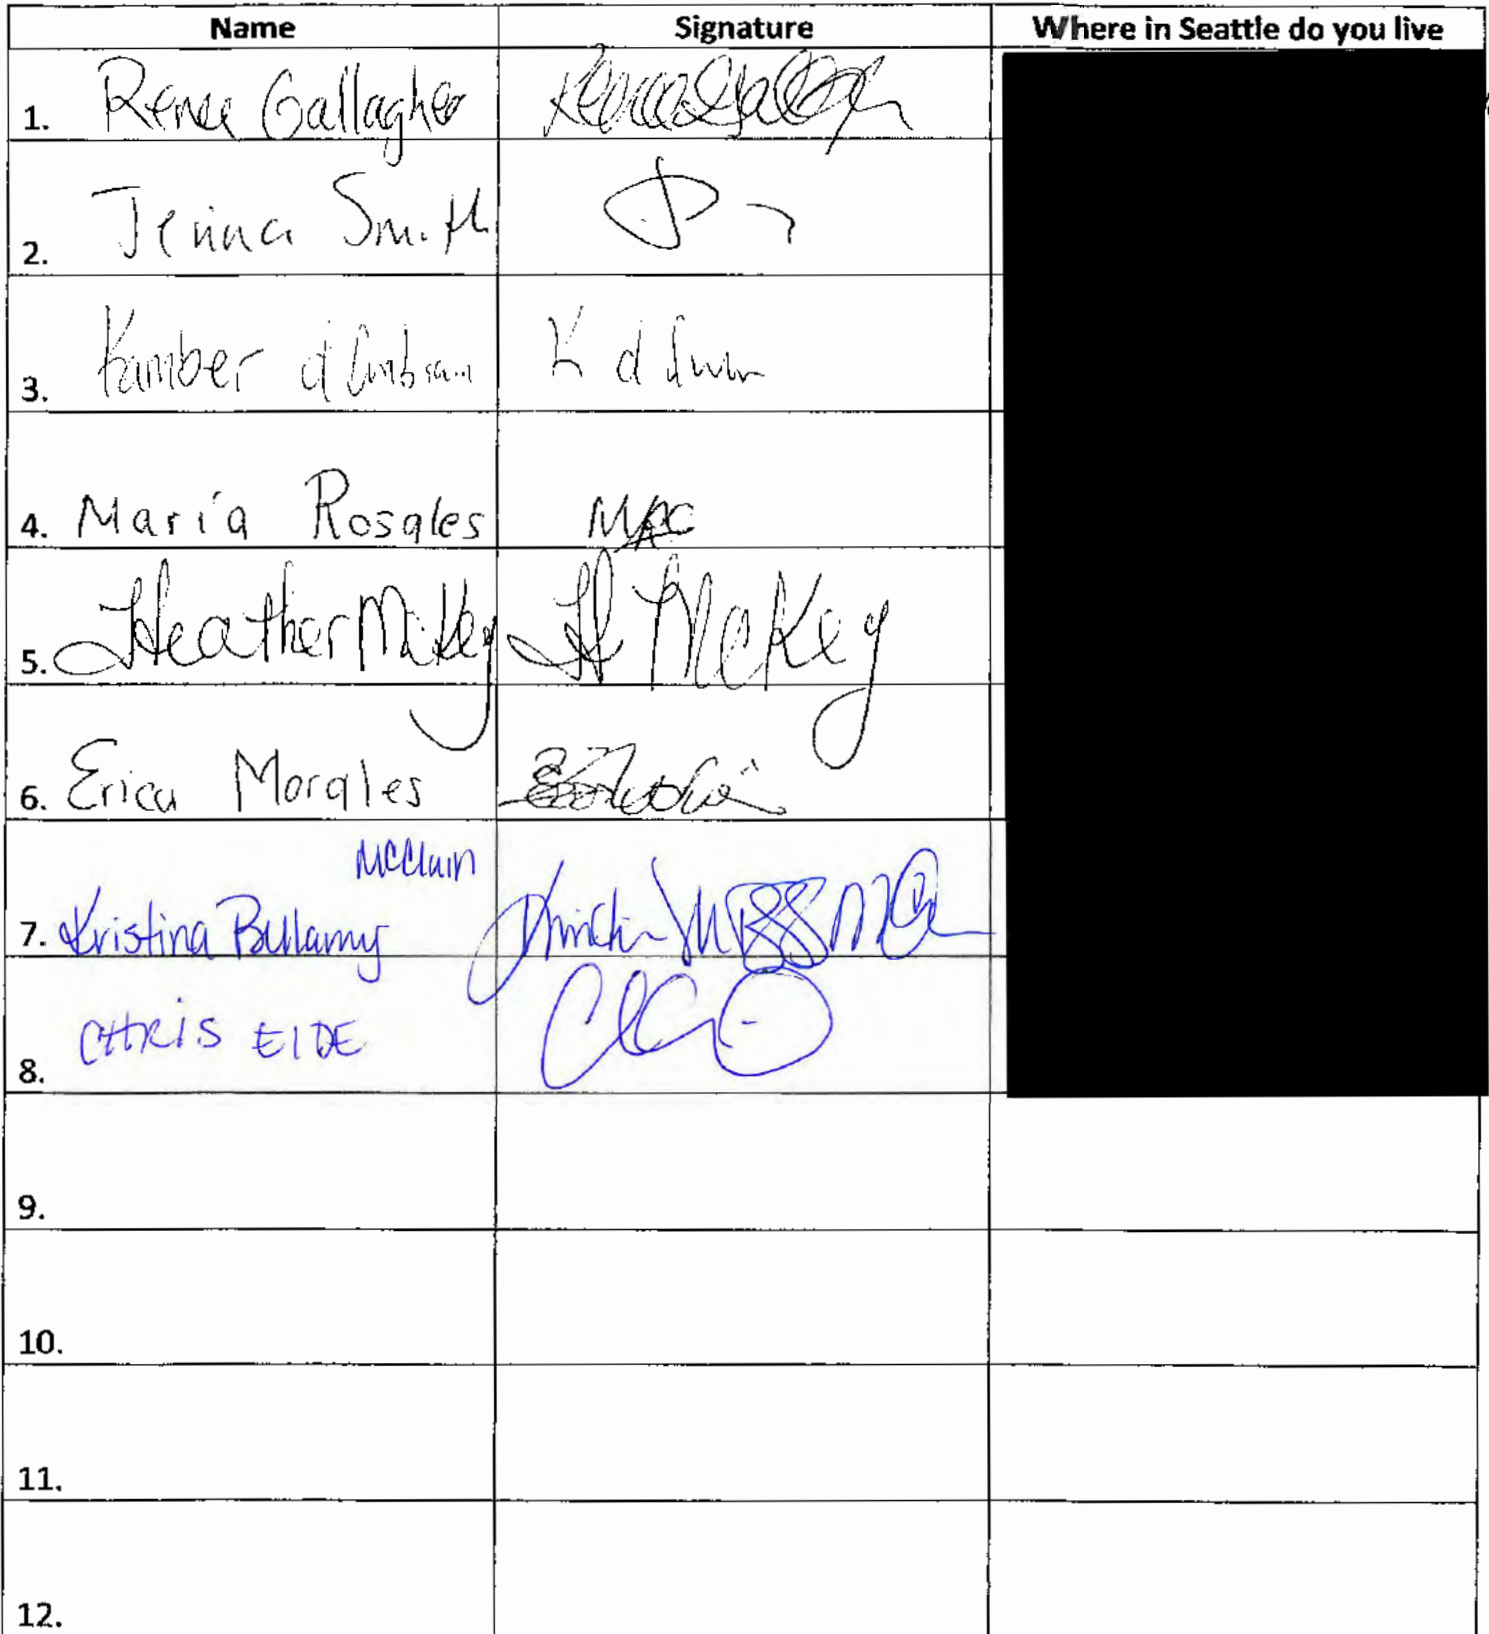 Name Signature Where in Seattle do you live
1. Renee Gallagher
2. Jenna Smith
3. Kamber d K d
4. María Rosales
5. Heather McKey H McKey
6. Erica Morales
McClain
7. Kristina Bellamy
8. CHRIS EIDE
9.
10.
11.
12.